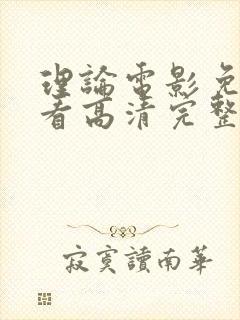 理論電影免
看高清完整
寂寞讀南華